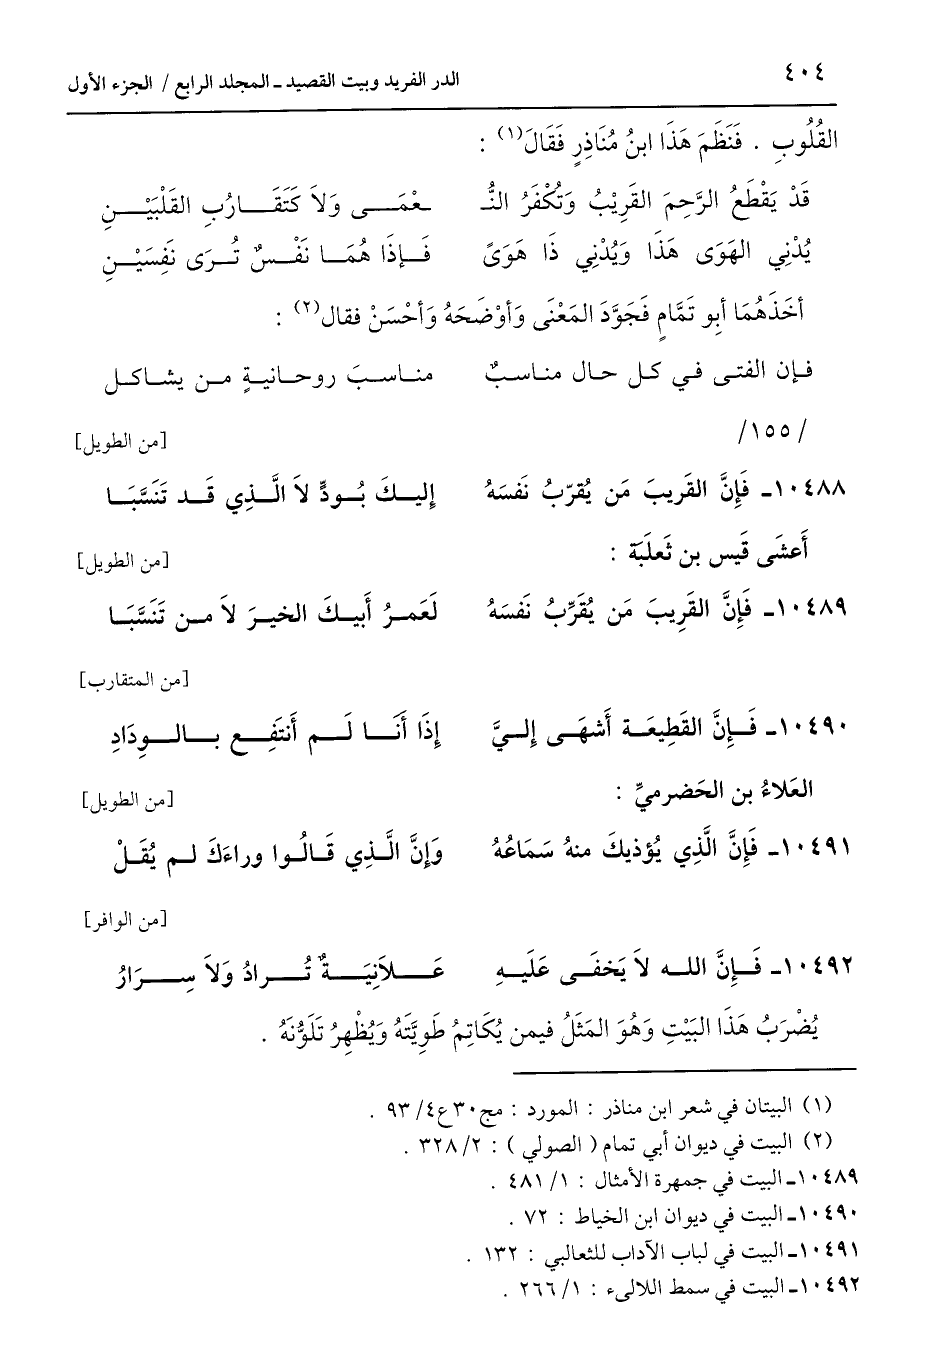 ٤٠٤ الدر الفريد وبيت القصيد ـ المجلد الرابع / الجزء الأول
القُلُوبِ . فَنَظَمَ هَذَا ابنُ مُنَاذِرٍ فَقَالَ(١) :
قَدْ يَقْطَعُ الرَّحِمَ القَرِيْبُ وَتُكْفَرُ النُّـ ـعْمَـى وَلاَ كَتَقَـارُبِ القَلْبَيْـنِ
يُدْنِي الهَوَى هَذَا وَيُدْنِي ذَا هَوَىً فَـإذَا هُمَـا نَفْـسٌ تُـرَى نَفِسَيْـنِ
أخَذَهُمَا أبو تَمَّامٍ فَجَوَّدَ المَعْنَى وَأوْضَحَهُ وَأحْسَنْ فقال(٢) :
فـإن الفتـى فـي كـل حال منـاسبٌ منـاسـبَ روحـانيـةٍ مـن يشـاكـل
/١٥٥/ [من الطويل]
١٠٤٨٨ـ فَإِنَّ القَرِيبَ مَن يُقرّبُ نَفسَهُ إليـكَ بُـودٍّ لاَ الَّـذِي قَـد تَنَسَّبَـا
أَعشَى قَيس بن ثَعلَبَة : [من الطويل]
١٠٤٨٩ـ فَإِنَّ القَرِيبَ مَن يُقَرِّبُ نَفسَهُ لَعَمـرُ أَبيـكَ الخيـرَ لاَ مـن تَنَسَّبَـا
[من المتقارب]
١٠٤٩٠ـ فَـإِنَّ القَطِيعَـة أَشهَـى إِلـيَّ إِذَا أَنَـا لَـم أَنتَفِـع بـالـوِدَادِ
العَلاءُ بن الحَضرميِّ : [من الطويل]
١٠٤٩١ـ فَإِنَّ الَّذِي يُؤذيكَ منهُ سَمَاعُهُ وَإِنَّ الَّـذِي قَـالُـوا وراءَكَ لـم يُقَـلْ
[من الوافر]
١٠٤٩٢ـ فَـإِنَّ اللـه لاَ يَخفَـى عَلَيـهِ عَـلاَنِيَـةٌ تُـرادُ وَلاَ سِـرَارُ
يُضْرَبُ هَذَا البَيْتِ وَهُوَ المَثَلُ فيمن يُكَاتِمُ طَوِيَّتَهُ وَيُظْهِرُ تَلَوُّنَهُ .
(١) البيتان في شعر ابن مناذر : المورد : مج٣٠ع٤/ ٩٣ .
(٢) البيت في ديوان أبي تمام ( الصولي ) : ٢/ ٣٢٨ .
١٠٤٨٩ـ البيت في جمهرة الأمثال : ١/ ٤٨١ .
١٠٤٩٠ـ البيت في ديوان ابن الخياط : ٧٢ .
١٠٤٩١ـ البيت في لباب الآداب للثعالبي : ١٣٢ .
١٠٤٩٢ـ البيت في سمط اللالىء : ١/ ٢٦٦ .